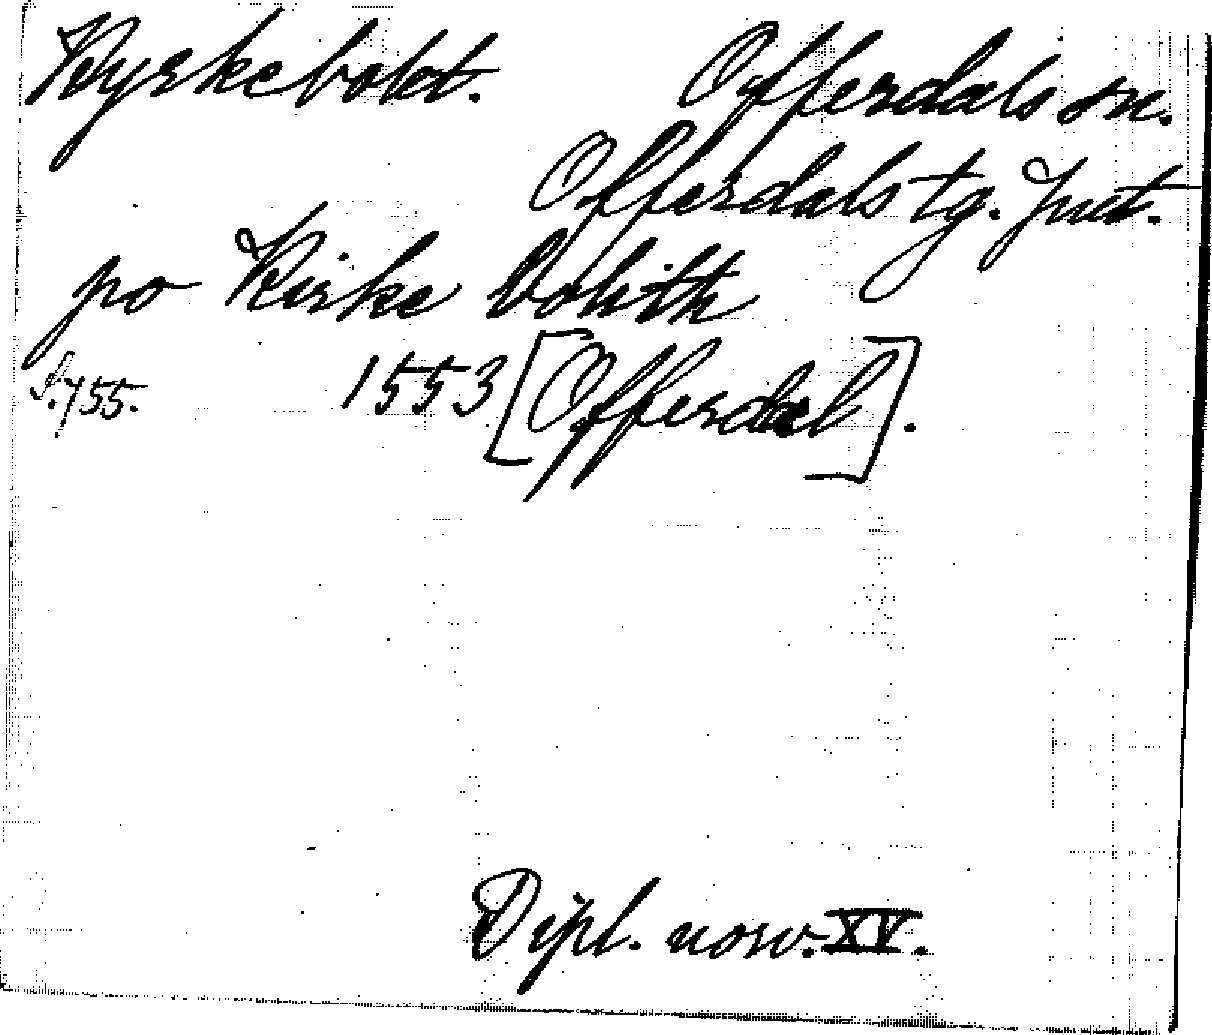 Kyrkebolet. Offerdals sn.
Offerdals tg. Jmt.
po Kirke Boluth
S. 755. 1553 [Offerdal].
Dipl. norv. XV.